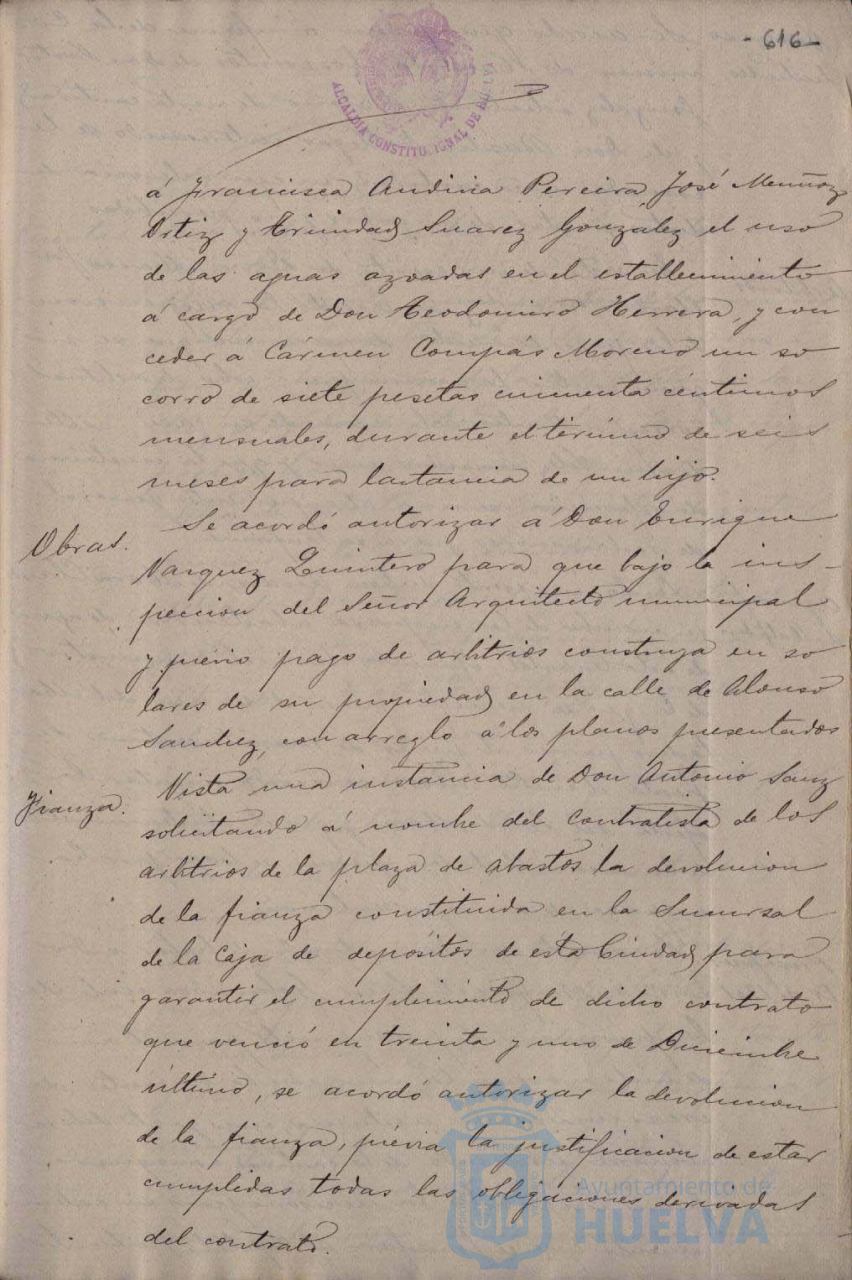 - 616 -
ALCALDIA CONSTITUCIONAL DE HUELVA
á Francisca Andivia Pereira, José Muñoz
Ortiz y Trinidad Suarez Gonzalez el uso
de las aguas azoadas en el establecimiento
á cargo de Don Teodomiro Herrera, y con
ceder á Cármen Compás Moreno un so
corro de siete pesetas cincuenta céntimos
mensuales, durante el término de seis
meses para lactancia de un hijo.
Obras.
Se acordó autorizar á Don Enrique
Vazquez Quintero para que bajo la ins-
peccion del Señor Arquitecto municipal
y prévio pago de arbitrios construya en so
lares de su propiedad en la calle de Alonso
Sanchez, con arreglo á los planos presentados
Fianza.
Vista una instancia de Don Antonio Sanz
solicitando á nombre del contratista de los
arbitrios de la plaza de abastos la devolucion
de la fianza constituida en la Sucursal
de la Caja de depósitos de esta Ciudad para
garantir el cumplimiento de dicho contrato
que venció en treinta y uno de Diciembre
último, se acordó autorizar la devolucion
de la fianza, prévia la justificacion de estar
cumplidas todas las obligaciones derivadas
del contrato.
Ayuntamiento de
HUELVA